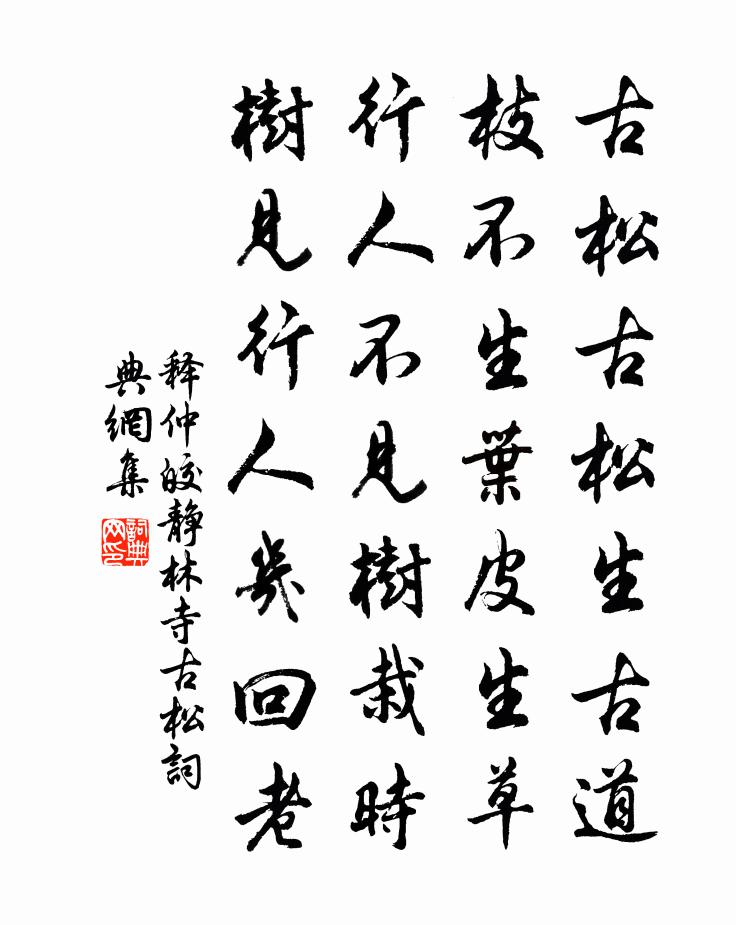 古松古松生古道
枝不生葉皮生草
行人不見樹栽時
樹見行人幾回老
释仲皎静林寺古松詞
典網集
詞典
网印